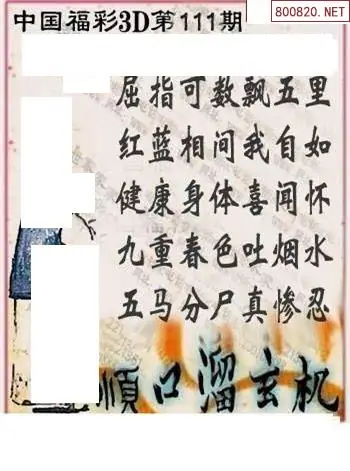 800820.NET
中国福彩3D第111期
屈指可数飘五里
红蓝相间我自如
健康身体喜闻怀
九重春色吐烟水
五马分尸真惨忍
顺口溜玄机